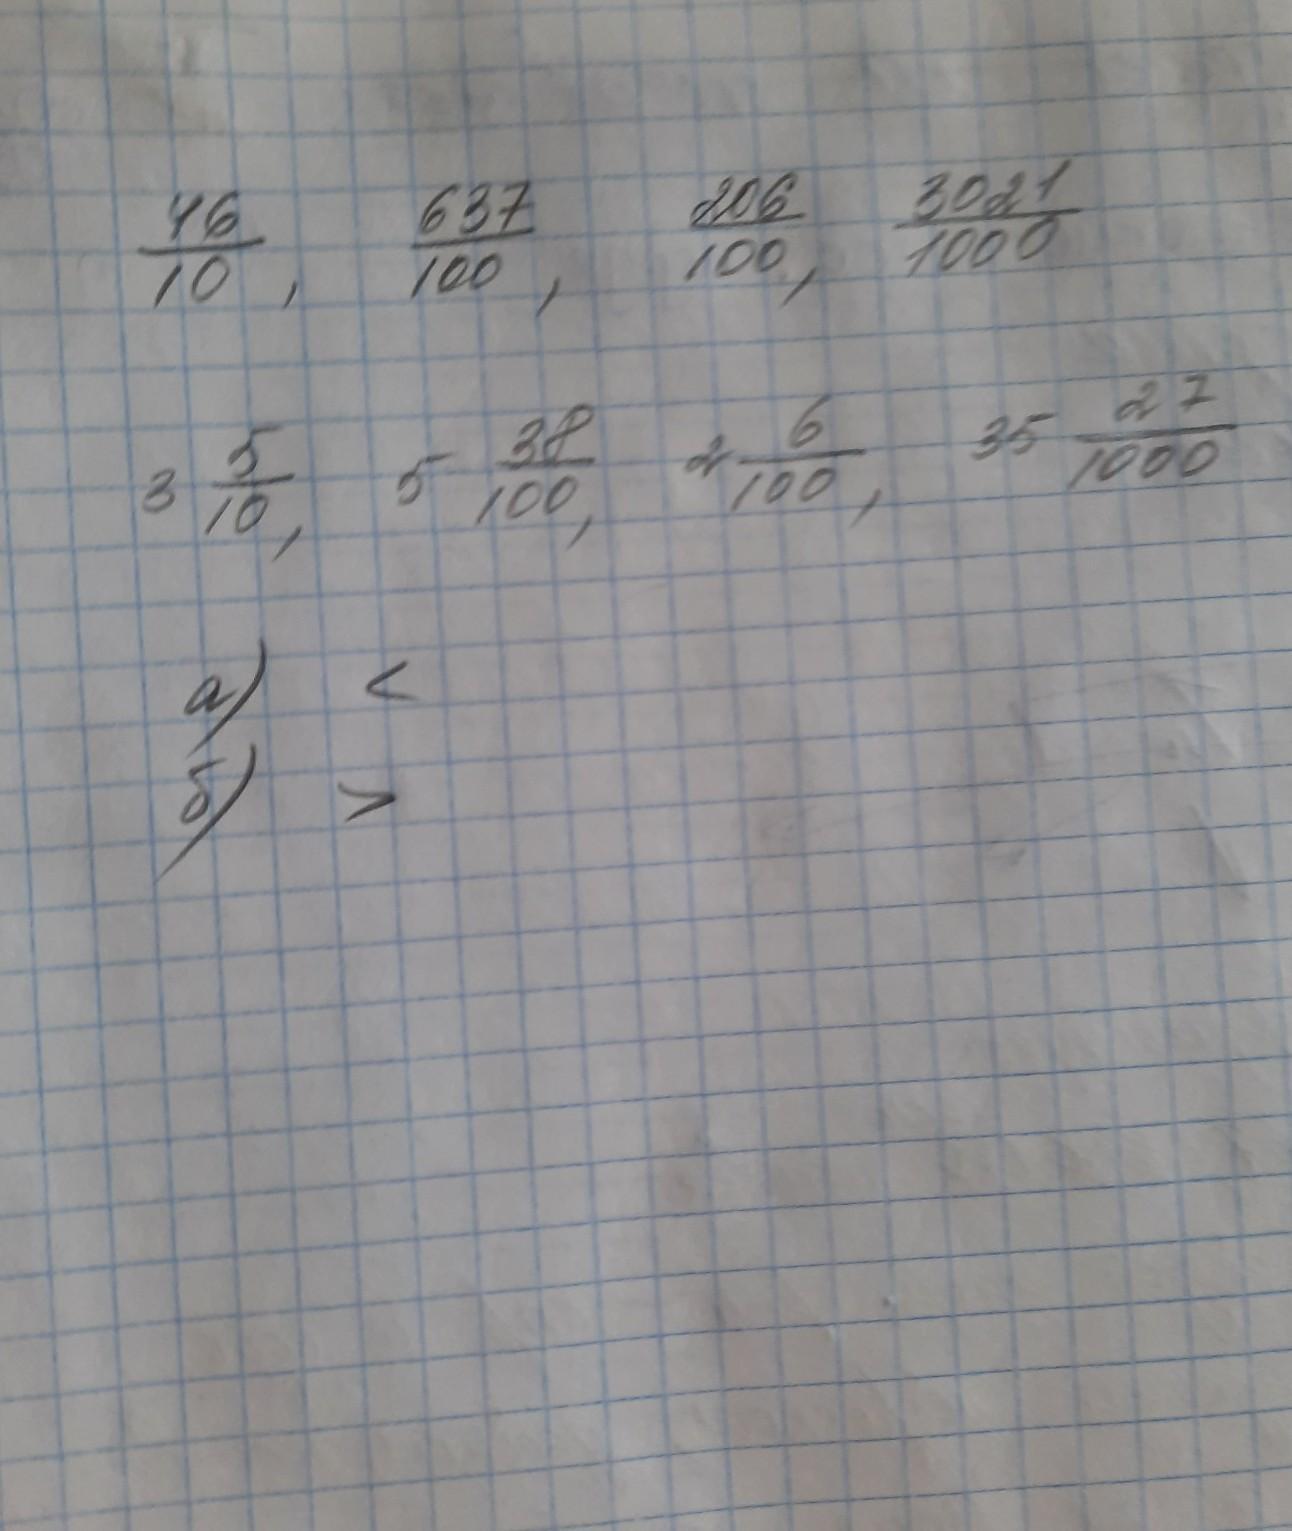 46/10, 637/100, 206/100, 3021/1000
3 5/10, 5 38/100, 2 6/100, 35 27/1000
а) <
б) >